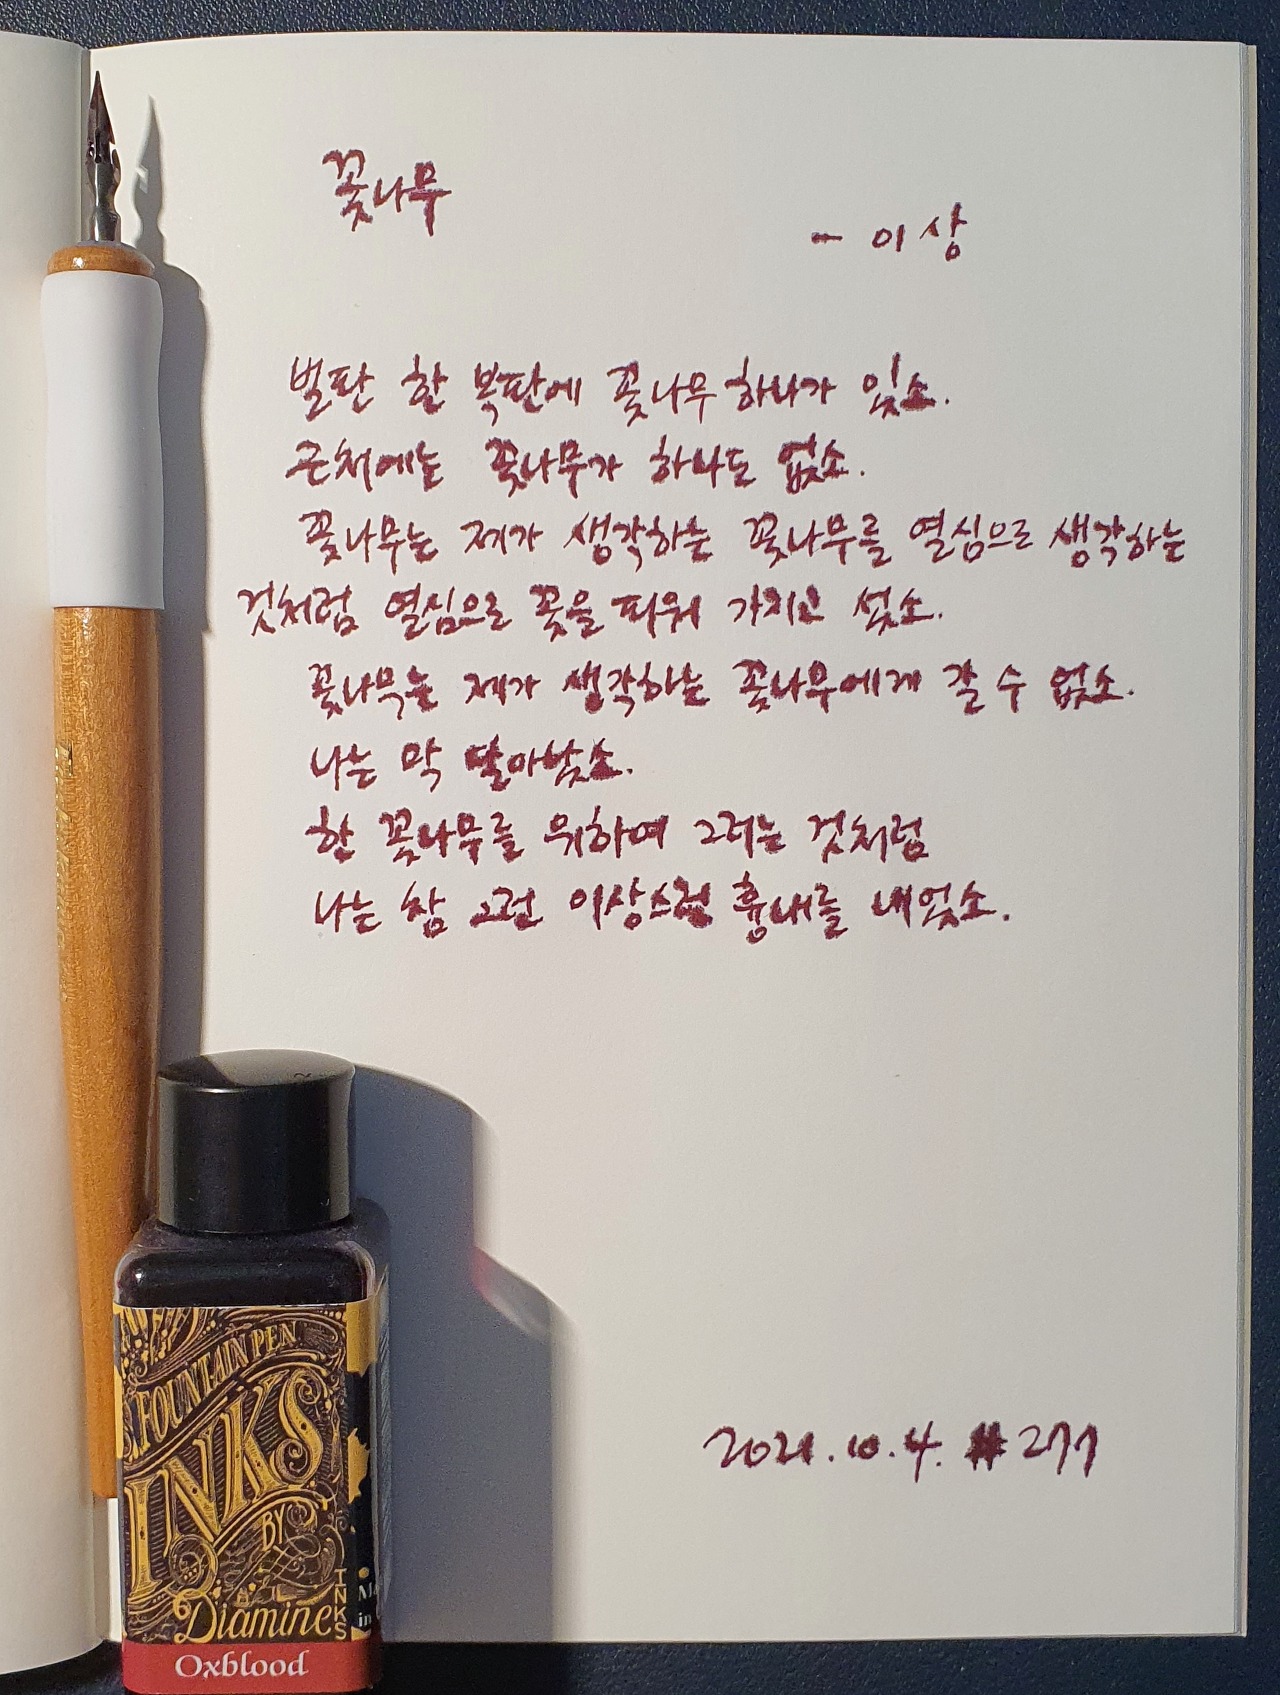 꽃나무
- 이상
벌판 한 복판에 꽃나무 하나가 있소.
근처에는 꽃나무가 하나도 없소.
꽃나무는 제가 생각하는 꽃나무를 열심으로 생각하는
것처럼 열심으로 꽃을 피워 가지고 섰소.
꽃나무는 제가 생각하는 꽃나무에게 갈 수 없소.
나는 막 달아났소.
한 꽃나무를 위하여 그러는 것처럼
나는 참 그런 이상스런 흉내를 내었소.
2021.10.4. #277
FOUNTAIN PEN
INKS
BY
Diamine
INKS
Oxblood